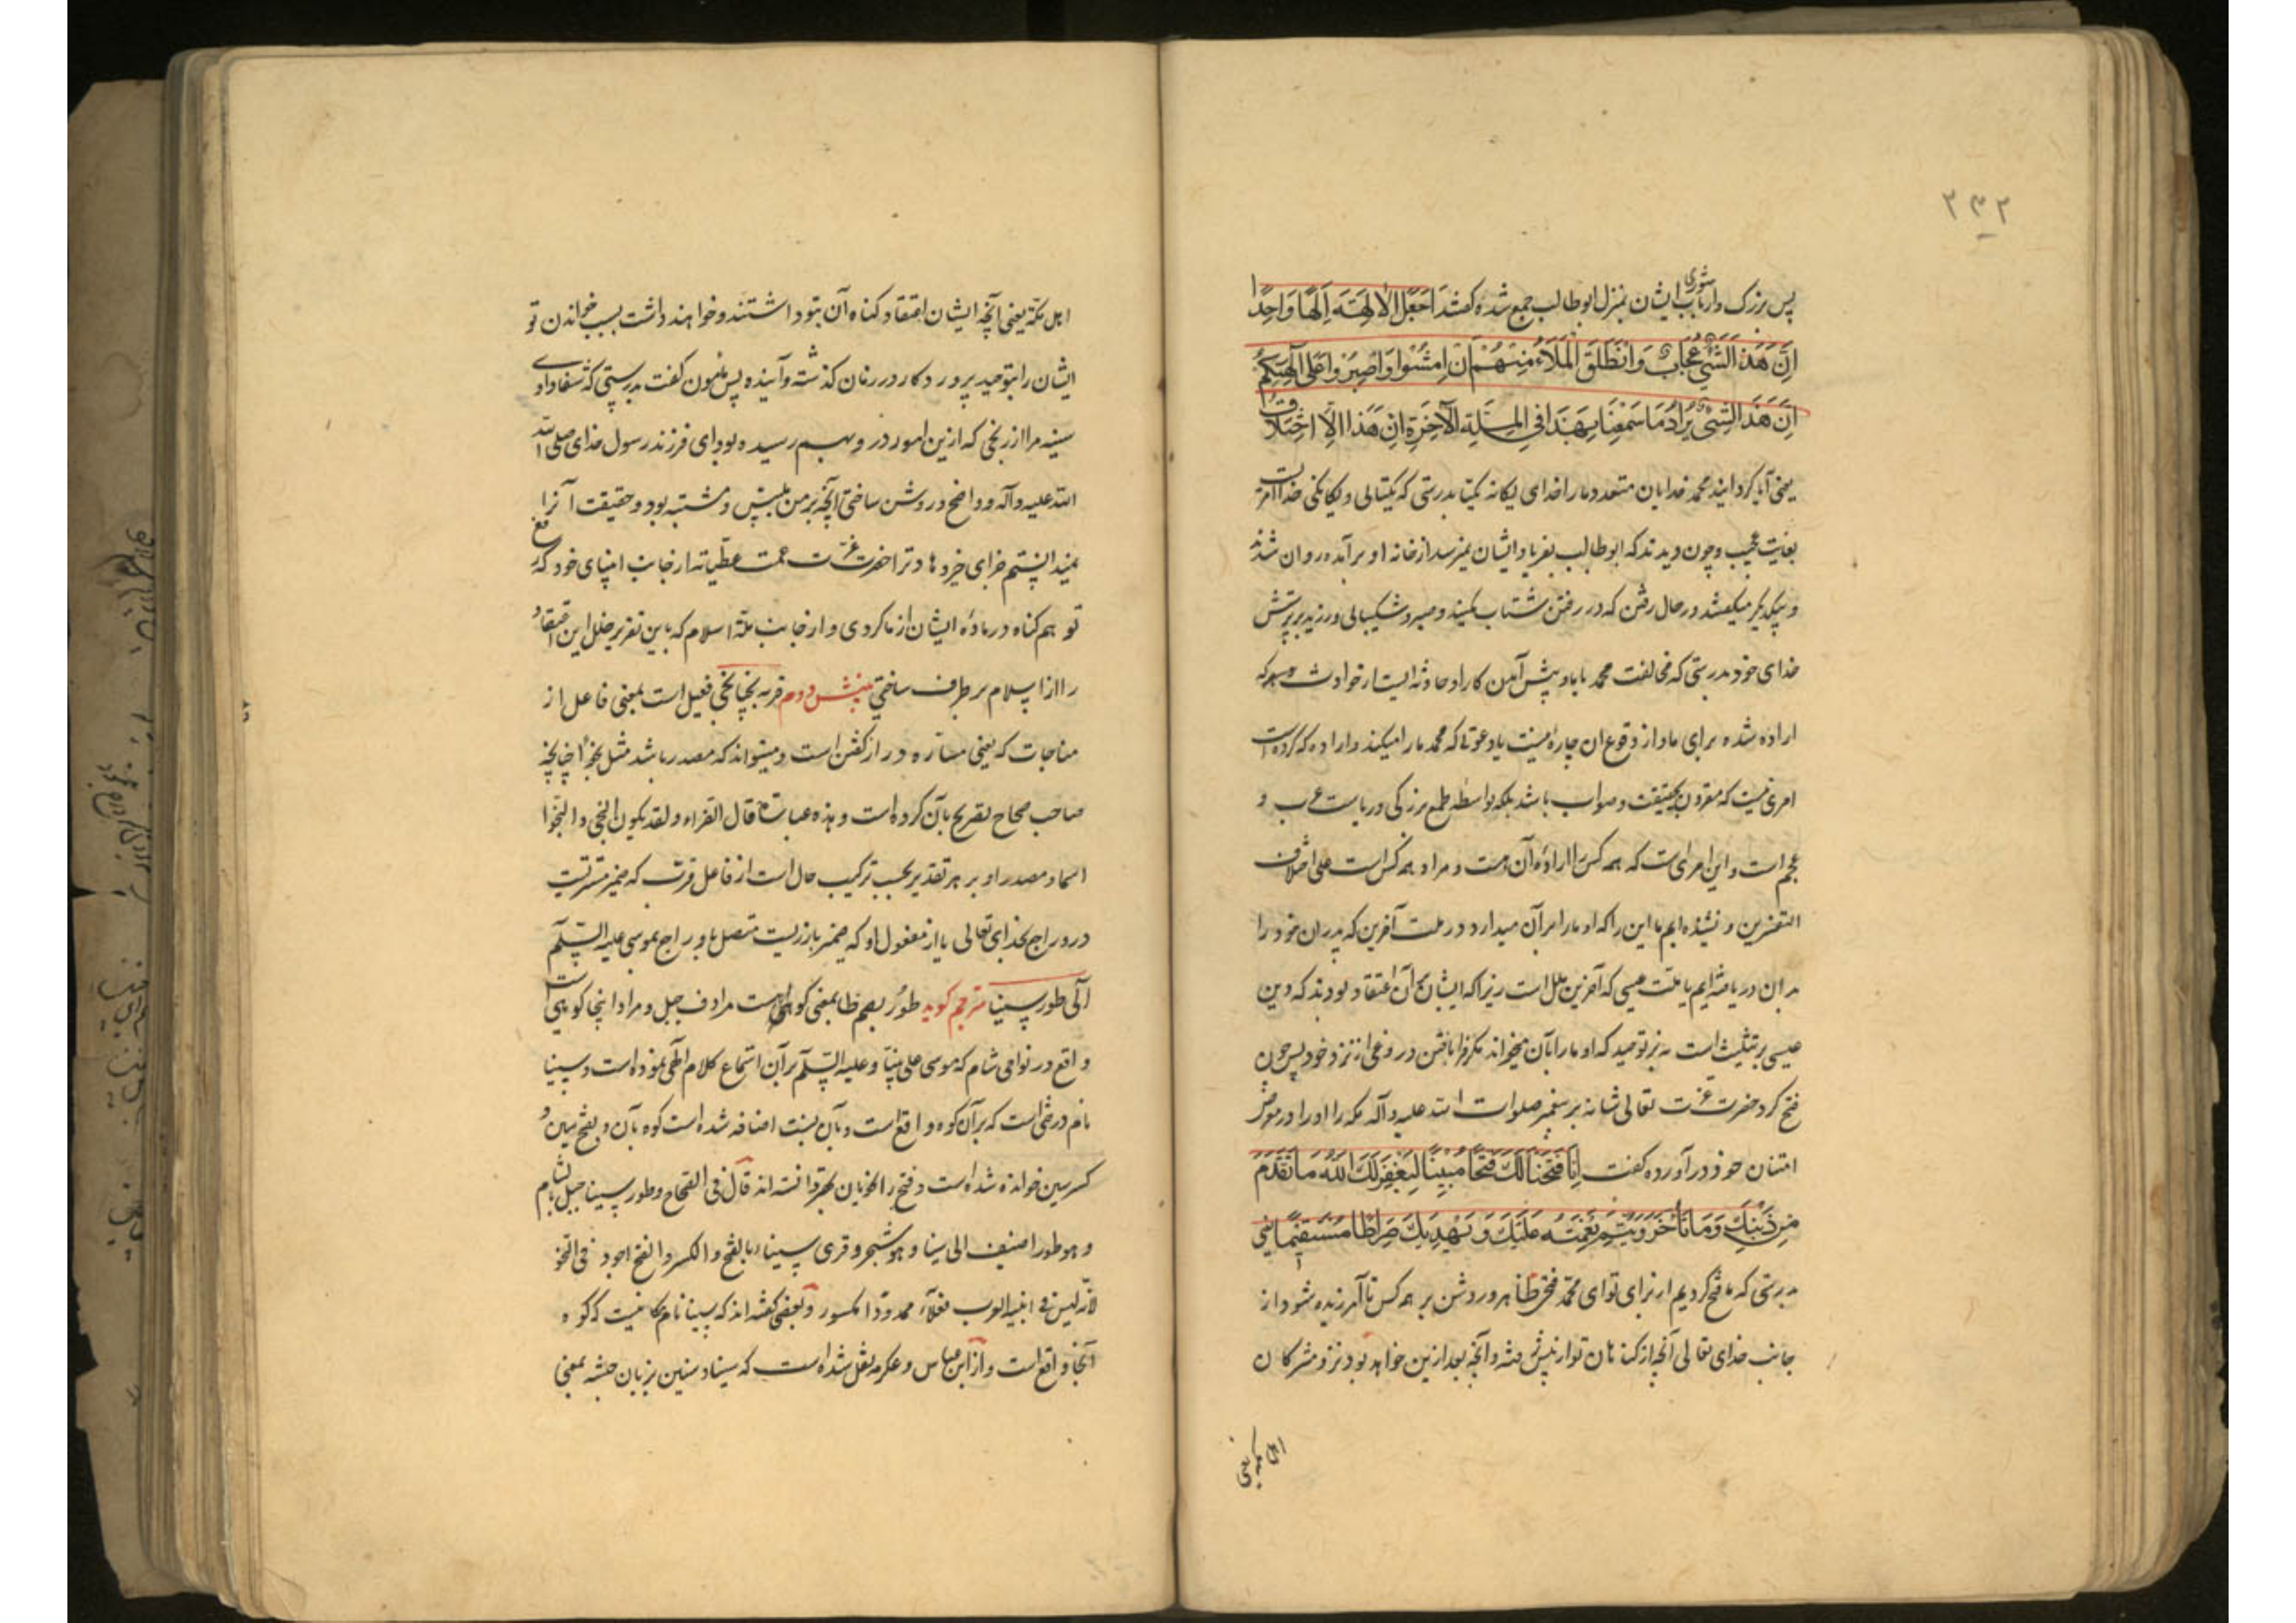 ۲۳۲
پس بزرگ وارباب شوری ایشان بمنزل ابوطالب جمع شده گفتند اَجَعَلَ الْاٰلِهَةَ اِلٰهًا وَاحِدًا
اِنَّ هَذَا لَشَیْءٌ عُجَابٌ وَانْطَلَقَ الْمَلَاءُ مِنْهُمْ اَنِ امْشُوا وَاصْبِرُوا عَلَی آلِهَتِکُمْ
اِنَّ هَذَا لَشَیْءٌ یُرَادُ مَا سَمِعْنَا بِهَذَا فِی الْمِلَّةِ الْآخِرَةِ اِنْ هَذَا اِلَّا اخْتِلَاقٌ
یعنی آیا گردانید محمد خدایان متعدد ما را خدای یگانه یکتا بدرستی که یکتائی و یگانگی خدا امریست
بغایت عجیب و چون دیدند که ابوطالب بفریاد ایشان نمیرسد از خانه او برآمده روان شدند
و بیکدیگر میگفتند در حال رفتن که در رفتن شتاب کنید و صبر و شکیبائی ورزید بر پرستش
خدای خود بدرستی که مخالفت محمد با ما و پیش آمدن کار او حادثه ایست از حوادث دهر که
اراده شده برای ما و از وقوع ان چاره نیست یا دعوتی که محمد ما را میکند و اراده که کرده است
امری نیست که مقرون بحقیقت و صواب باشد بلکه بواسطه طمع بزرگی و ریاست عرب و
عجم است و این امری است که همه کس را اراده آن هست و مراد همه کس است علی اختلاف
التفسیرین و نشنیده ایم ما این را که او ما را امر آن میدارد در ملت آخرین که پدران خود را
بدان دریافته ایم یا ملت عیسی که آخرین ملل است زیرا که ایشان بر آن اعتقاد بودند که دین
عیسی بر تثلیث است نه بر توحید که او ما را بآن میخواند مگر فرا بافتن دروغی از نزد خود پس چون
فتح کرد حضرت عزت تعالی شانه بر پیغمبر صلوات الله علیه و آله مکه را او را در معرض
امتنان خود در آورده گفت اِنَّا فَتَحْنَا لَکَ فَتْحًا مُبِینًا لِیَغْفِرَ لَکَ اللهُ مَا تَقَدَّمَ
مِنْ ذَنْبِکَ وَمَا تَأَخَّرَ وَیُتِمَّ نِعْمَتَهُ عَلَیْکَ وَیَهْدِیَکَ صِرَاطًا مُسْتَقِیمًا یعنی
بدرستی که ما فتح کردیم از برای تو ای محمد فتحی ظاهر و روشن بر همه کس تا آمرزیده شود از
جانب خدای تعالی آنچه از گناهان تو از پیش رفته و آنچه بعد ازین خواهد بود نزد مشرکان
اهل مکه یعنی
اهل مکه یعنی آنچه ایشان اعتقاد گناه آن بتو داشتند و خواهند داشت بسبب خواندن تو
ایشان را بتوحید پروردگار در زمان گذشته و آینده پس مامون گفت بدرستی که شفا دادی
سینه مرا از رنجی که ازین امور در و بهم رسیده بود ای فرزند رسول خدای صلی الله
الله علیه و آله و واضح و روشن ساختی آنچه بر من ملتبس و مشتبه بود و حقیقت آنرا
نمیدانستم جزای خیر دهاد ترا حضرت عزت عمت عطیاته از جانب انبیای خود که رفع
توهم گناه در ماده ایشان از ما کردی و از جانب ملة اسلام که باین تقریر خلل این اعتقاد
را از اسلام بر طرف ساختی بخش دوم قربه نجیا نجی فعیل است بمعنی فاعل از
مناجات که یعنی مساره در راز گفتن است و میتواند که مصدر باشد مثل نجوا چنانچه
صاحب صحاح تصریح بآن کرده است و هذه عبارته قال الفراء و لقد یکون النجی و النجوا
اسما و مصدرا و بر هر تقدیر بحسب ترکیب حال است از فاعل قربت که ضمیر مستتریست
درو راجع بخدای تعالی یا از مفعول او که ضمیر بارزیست متصل باو راجع بموسی علیه السلام
آلی طور سینا مترجم گوید طور بضم طا بمعنی کوه است مرادف جبل و مراد اینجا کوهی است
واقع در نواحی شام که موسی علی نبینا و علیه السلام بر آن استماع کلام الهی نموده است و سینا
نام درختی است که بر آن کوه واقع است و بآن نسبت اضافه شده است کوه بآن و بفتح سین و
کسر سین خوانده شده است و فتح را نحویان بهتر دانسته اند قال فی الصحاح و طور سینا جبل بالشام
و هو طور اضیف الی سینا و هو شجر و قری سیناء بالفتح و الکسر و الفتح اجود فی النحو
لانه لیس فی ابنیة العرب فعلاء ممدودا مکسور و بعضی گفته اند که سینا نام مکانیست که کوه
آنجا واقع است و از ابن عباس و عکرمه نقل شده است که سینا و سنین بزبان حبشه بمعنی